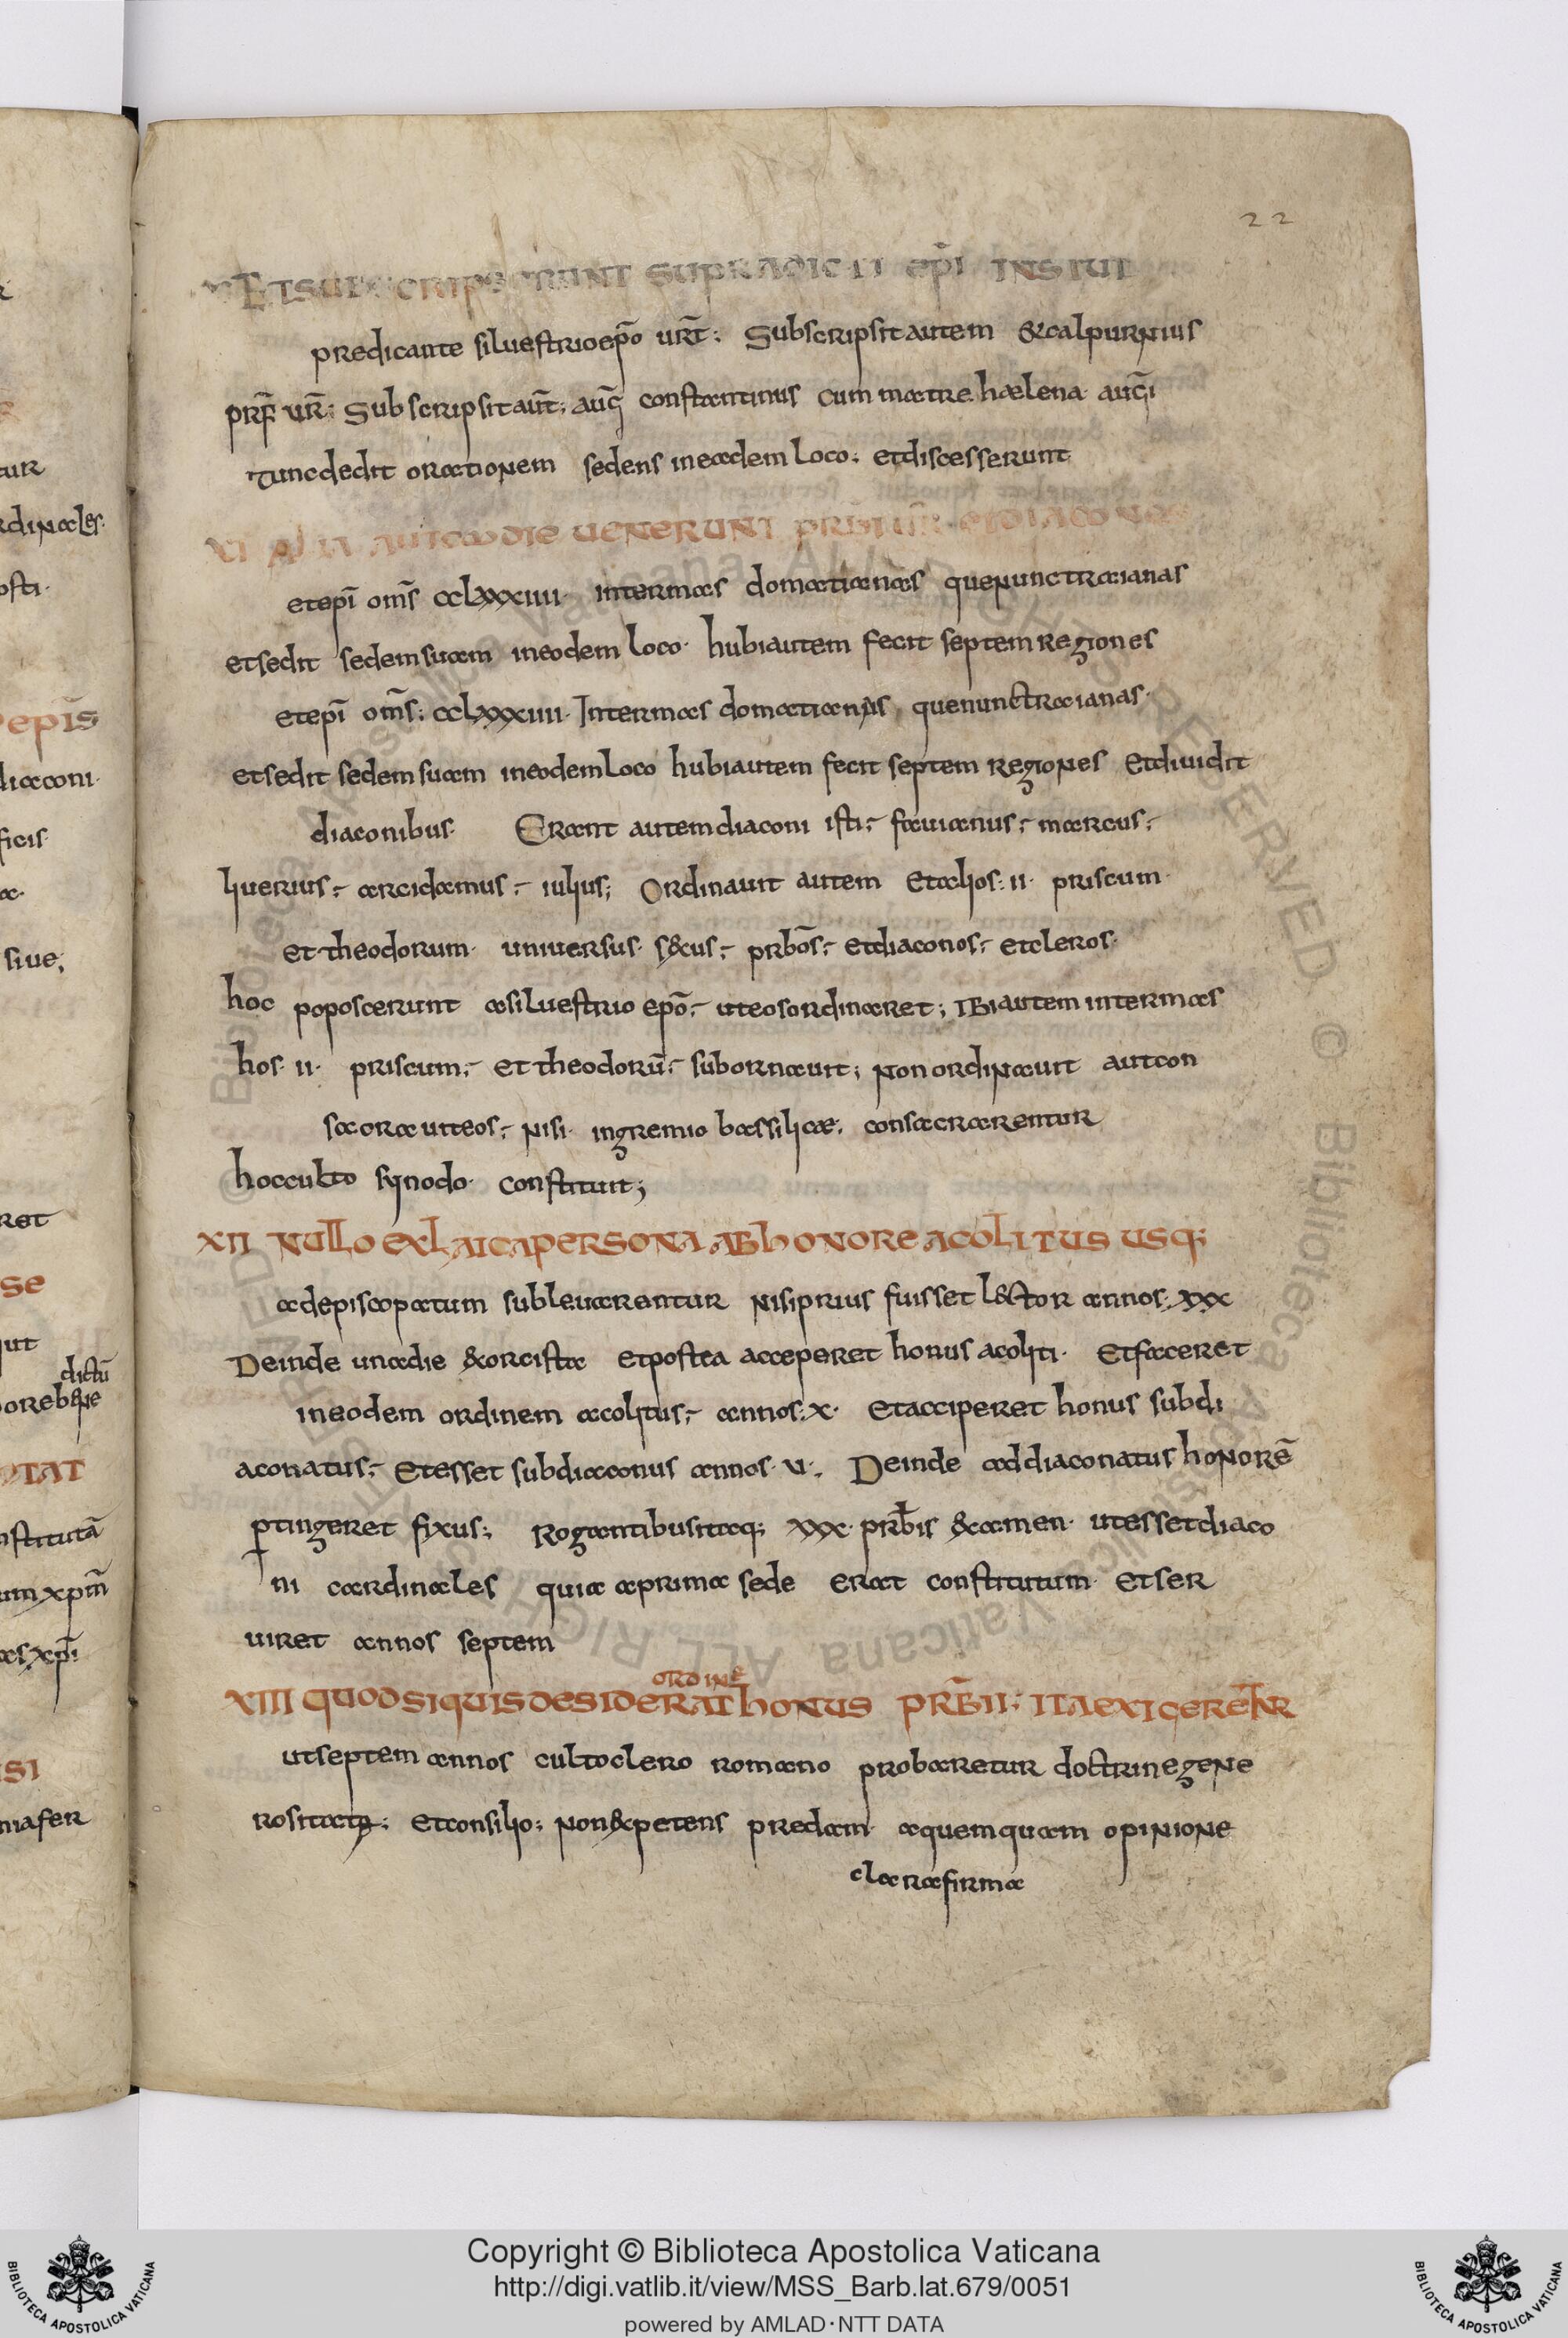 22
Et subscripserunt supradicti ep̄i in situ
predicante silvestrio ep̄o urt̄; Subscripsit autem & calpurnius
prf̄ ur̄; Subscripsit aut̄; auḡ constantinus cum matre haelena auḡi
Tunc dedit orationem sedens in eadem loco; et discesserunt
XI Alia autem die uenerunt prb̄i et diaconos
et epī om̄s cclxxxiiii· inter mas domatianas que nunc traianas
et sedit sedem suam in eodem loco· hubi autem fecit septem regiones
et epī om̄s; cclxxxiiii· Inter mas domatianas, que nunc traianas·
et sedit sedem suam in eodem loco hubi autem fecit septem regiones Et diuidit
diaconibus· Erant autem diaconi isti; fauianus; marcus;
liuerius; arcidamus; iulius; Ordinauit autem et alios; ii· priscum·
et theodorum· uniuersus· s&cus; prbōs; et diaconos; et cleros·
hoc poposcerunt a siluestrio epō; ut eos ordinaret; IBi autem inter mas
hos· ii· priscum; et theodorū; subornauit; non ordinauit aut con
sacrauit eos; nisi· in gremio bassilicae; consacrarentur
hoc culto synodo· constituit;
XII Nullo ex laica persona ab honore acolitus usq;
ad episcopatum subleuarentur nisi prius fuisset l&tor annos; xxx
Deinde una die &orcista et postea acceperet honus acoliti· Et faceret
in eodem ordinem acolitus; annos; x· et acciperet honus subdi
aconatus; Et esset subdiaconus annos· u·. Deinde ad diaconatus honorē
ptingeret fixus; Rogantibus itaq; xxx· prb̄is & amen· ut esset diaco
ni cardinales quia a prima sede erat constitutum· et ser
uiret annos septem
ordinē
XIII Quod si quis desiderat honus prb̄ii; ita exigeretur
ut septem annos culto clero romano probaretur doctrine gene
rositatq; et consilio; non &petens predam a quemquam opinione
clara firma
Copyright © Biblioteca Apostolica Vaticana
http://digi.vatlib.it/view/MSS_Barb.lat.679/0051
powered by AMLAD·NTT DATA